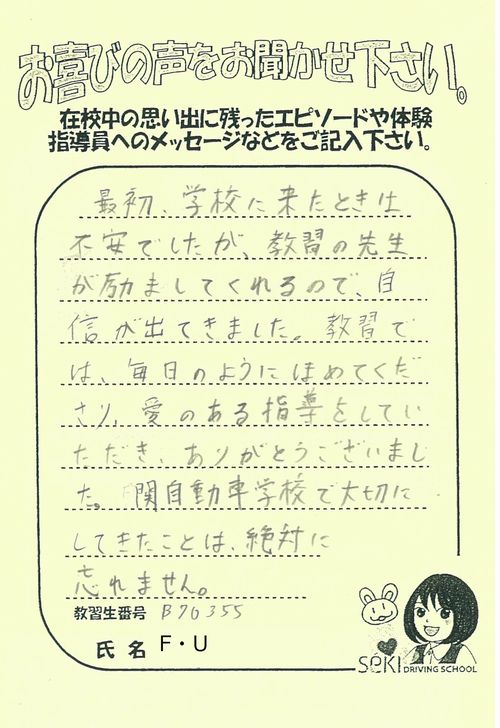 お喜びの声をお聞かせ下さい。
在校中の思い出に残ったエピソードや体験
指導員へのメッセージなどをご記入下さい。
最初、学校に来たときは
不安でしたが、教習の先生
が励ましてくれるので、自
信が出てきました。教習で
は、毎日のようにほめてくだ
さり、愛のある指導をしてい
ただき、ありがとうございまし
た。関自動車学校で大切に
してきたことは、絶対に
忘れません。
教習生番号 B76355
氏名 F・U
SEKI DRIVING SCHOOL